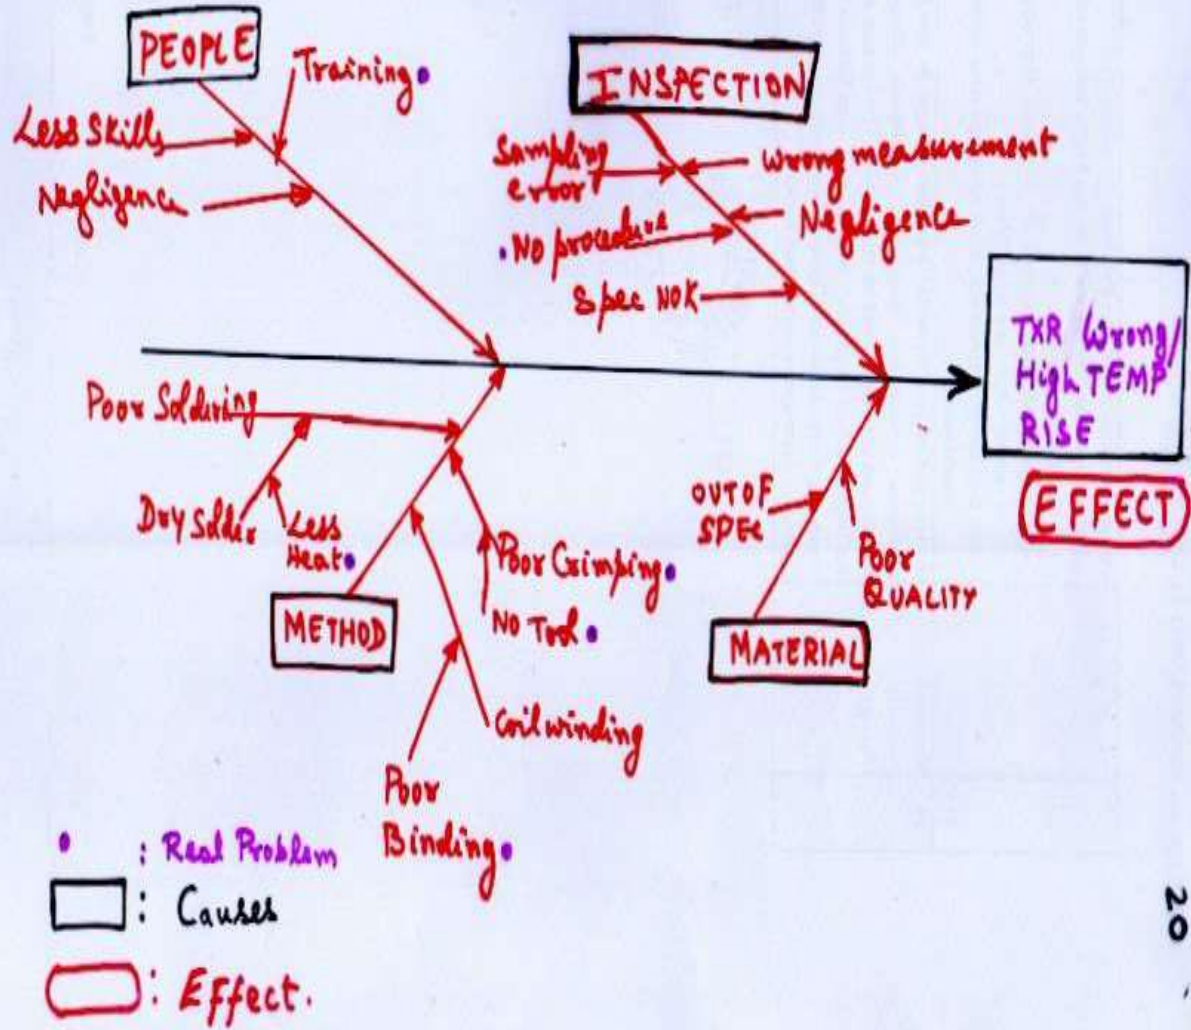 PEOPLE
Training
Less Skills
Negligence
INSPECTION
Sampling
error
wrong measurement
Negligence
No procedure
Spec NOK
TXR Wrong/
High TEMP
RISE
EFFECT
Poor Soldering
Dry Solder
Less
Heat
METHOD
Poor Crimping
NO Tool
Coil winding
Poor
Binding
OUT OF
SPEC
Poor
QUALITY
MATERIAL
: Real Problem
: Causes
: Effect.
20